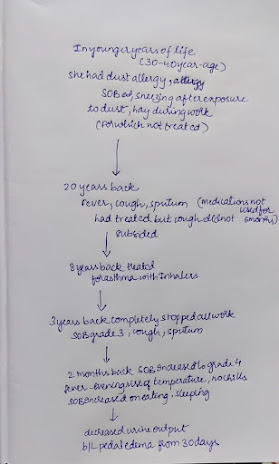 In younger years of life
(30-40 year-age)
she had dust allergy, allergy
SOB, sneezing after exposure
to dust, hay during work
(for which not treated)
20 years back
fever, cough, sputum (medications not
had treated but cough did not used for
6 months)
subsided
8 years back treated
for asthma with Inhalers
3 years back completely stopped all work
SOB grade 3, cough, sputum
2 months back SOB increased to grade 4
fever - evening rise of temperature, no chills
SOB increased on eating, sleeping
decreased urine output
b/L pedal edema from 30 days